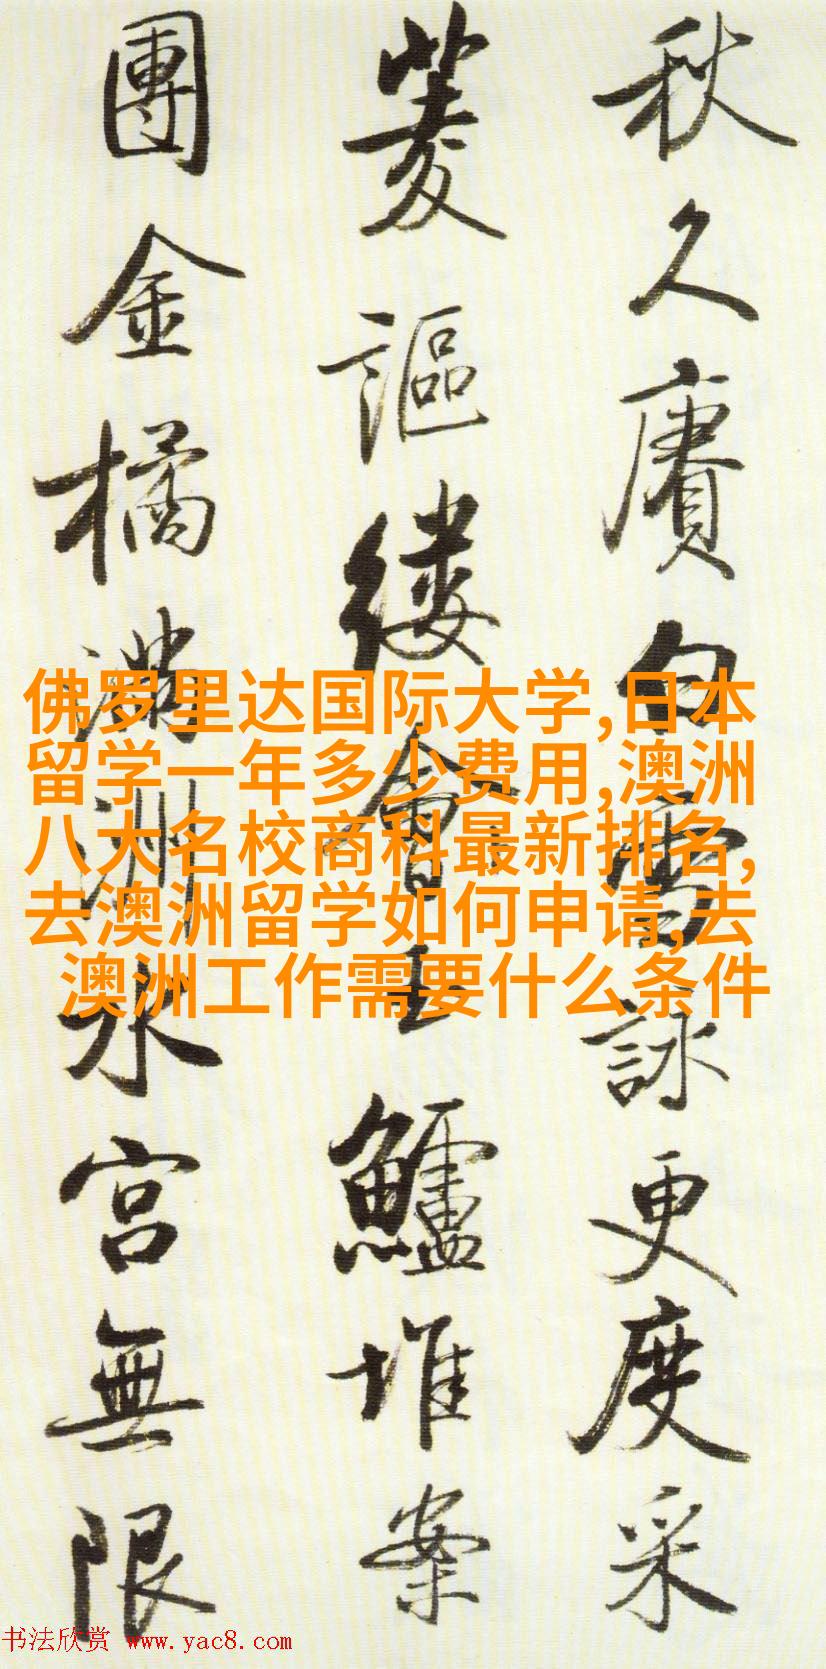 秋久賡白雪詠更度采
菱謳縷會玉鱸堆案
團金橘滿洲水宮無限
佛罗里达国际大学,日本
留学一年多少费用,澳洲
八大名校商科最新排名,
去澳洲留学如何申请,去
澳洲工作需要什么条件
书法欣赏 www.yac8.com